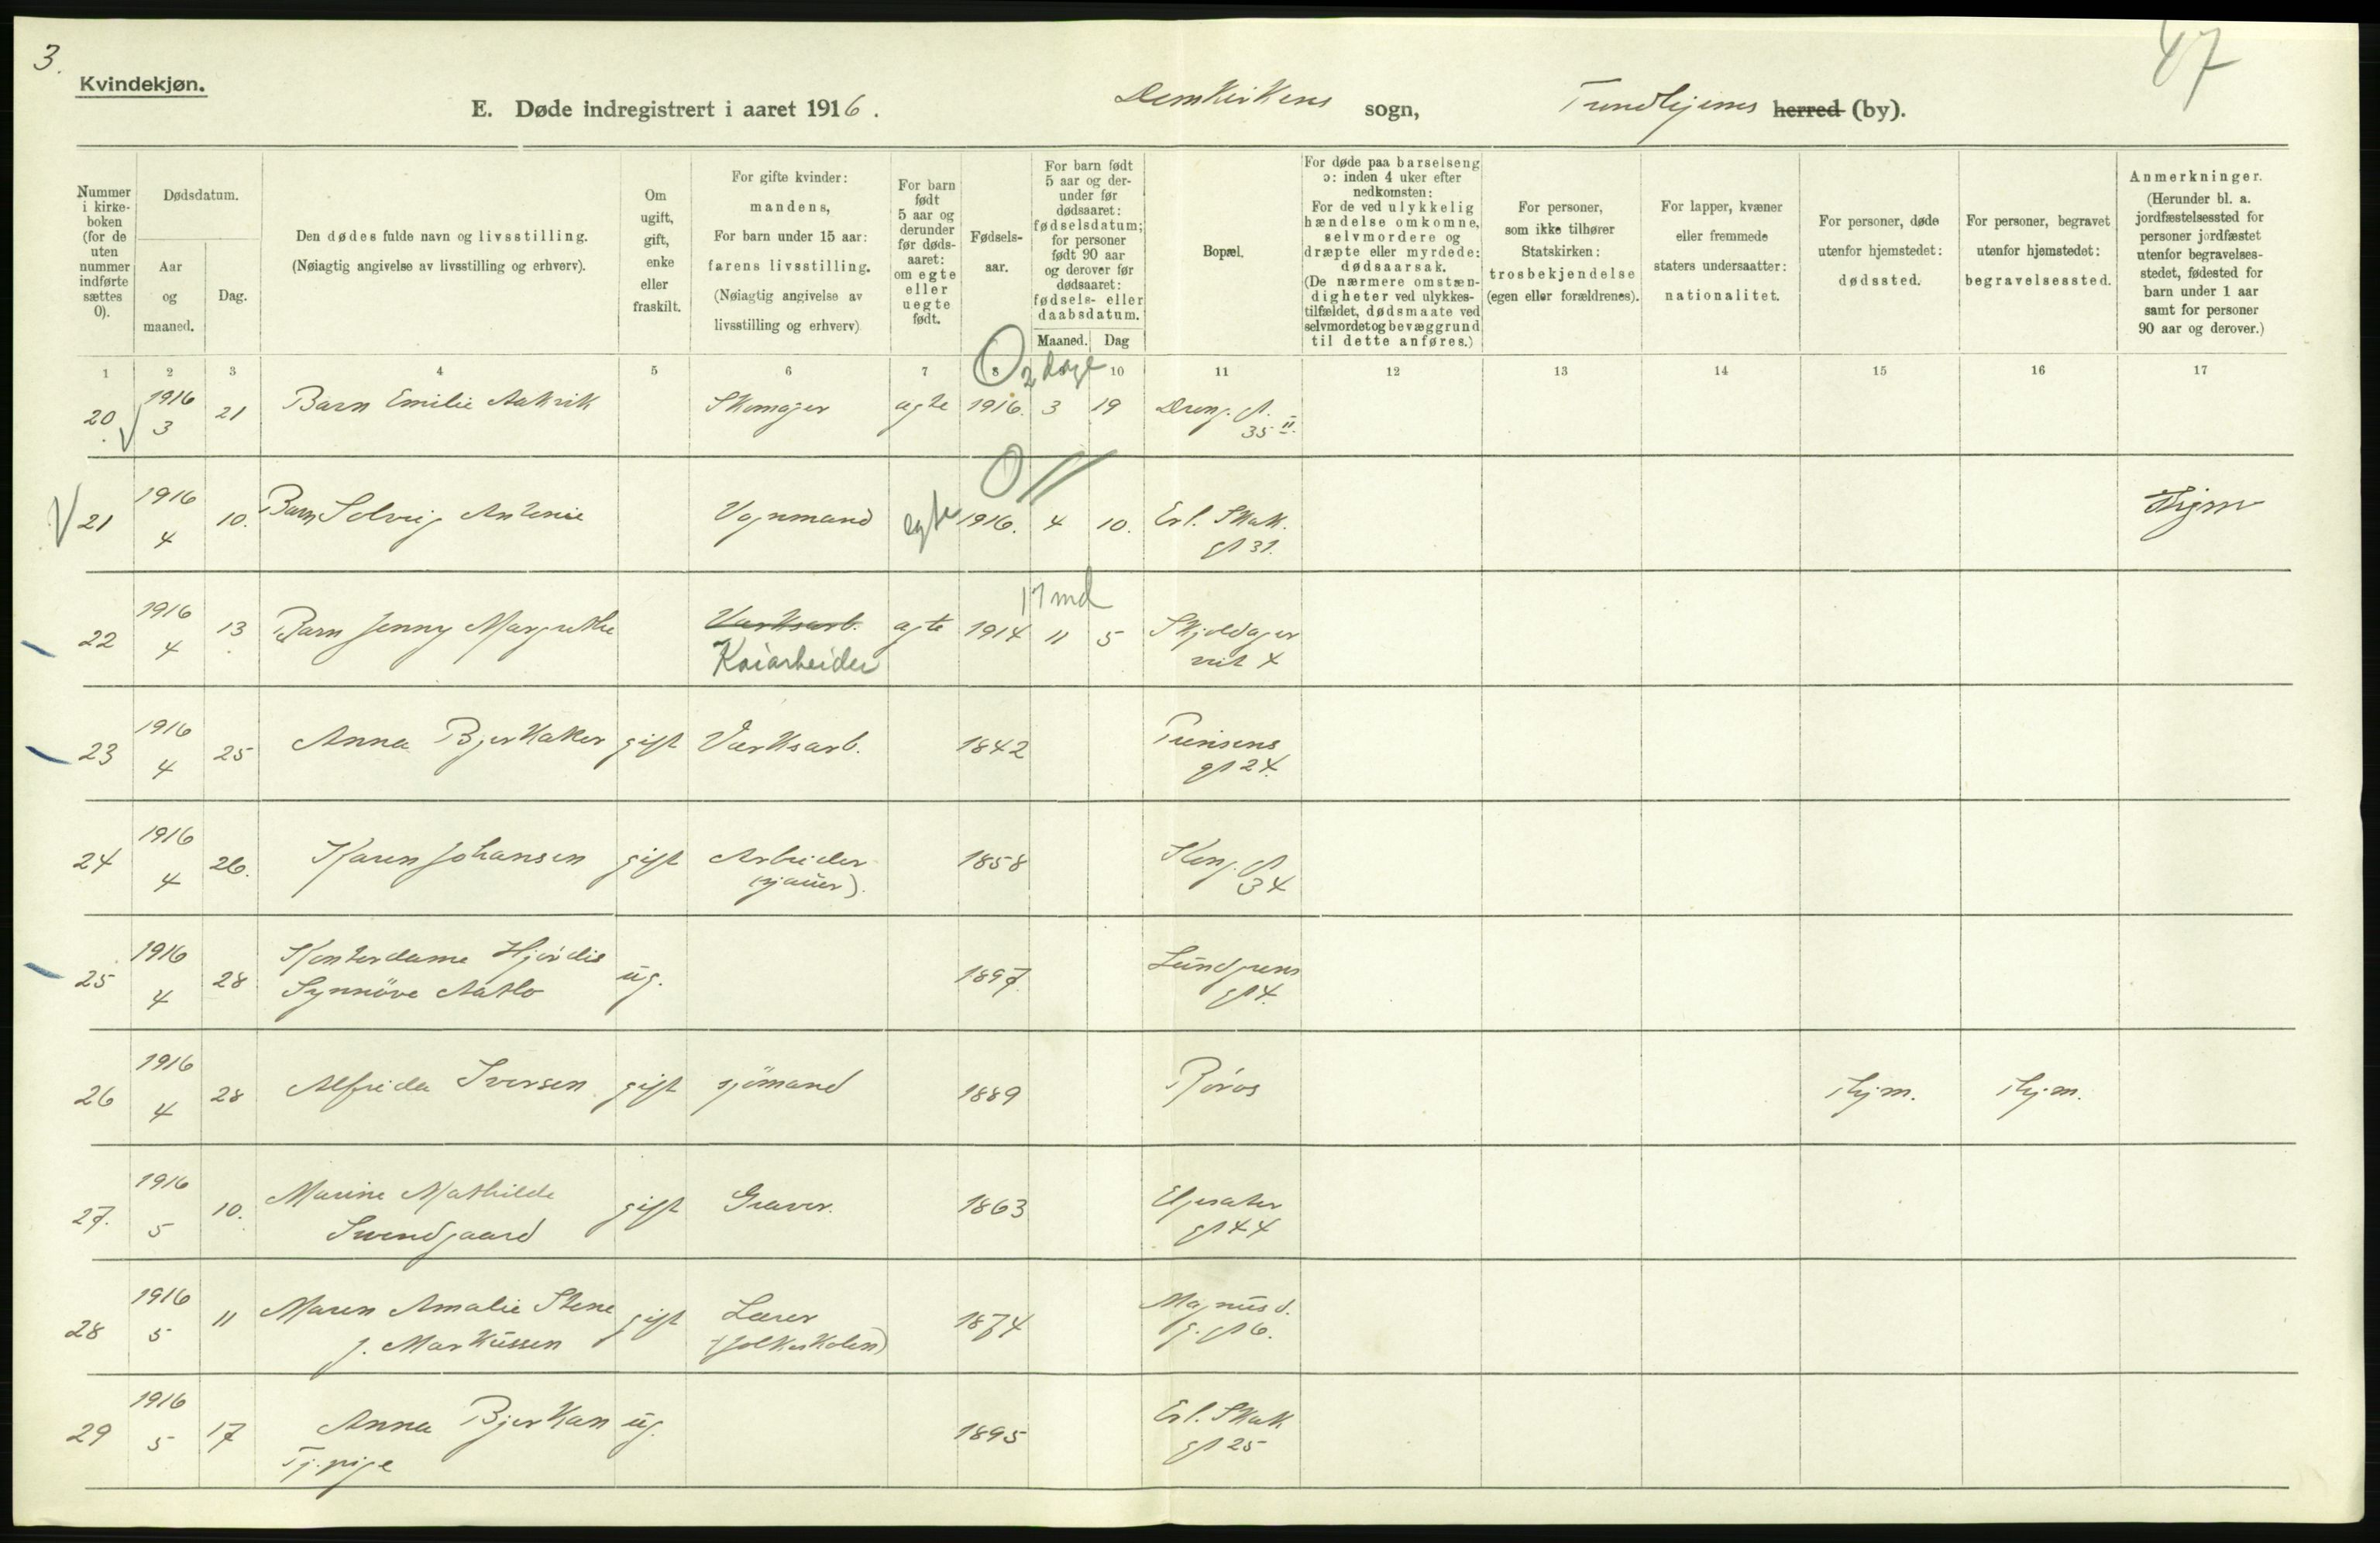 3.
47
Kvindekjøn.
E. Døde indregistrert i aaret 1916.
Domkirkens sogn,
Trondhjems herred (by).
Nummer i kirke-boken (for de uten nummer indførte sættes 0).
Dødsdatum.
Aar og maaned.
Dag.
Den dødes fulde navn og livsstilling.
(Nøiagtig angivelse av livsstilling og erhverv).
Om ugift, gift, enke eller fraskilt.
For gifte kvinder: mandens,
For barn under 15 aar: farens livsstilling.
(Nøiagtig angivelse av livsstilling og erhverv)
For barn født 5 aar og derunder før døds-aaret: om egte eller uegte født.
Fødsels-aar.
For barn født 5 aar og der-under før dødsaaret: fødselsdatum; for personer født 90 aar og derover før dødsaaret: fødsels- eller daabsdatum.
Maaned.
Dag
Bopæl.
For døde paa barselseng ɔ: inden 4 uker efter nedkomsten:
For de ved ulykkelig hændelse omkomne, selvmordere og dræpte eller myrdede: dødsaarsak.
(De nærmere omstæn-digheter ved ulykkes-tilfældet, dødsmaate ved selvmordet og bevæggrund til dette anføres.)
For personer, som ikke tilhører Statskirken: trosbekjendelse (egen eller forældrenes).
For lapper, kvæner eller fremmede staters undersaatter: nationalitet.
For personer, døde utenfor hjemstedet: dødssted.
For personer, begravet utenfor hjemstedet: begravelsessted.
Anmerkninger.
(Herunder bl. a. jordfæstelsessted for personer jordfæstet utenfor begravelses-stedet, fødested for barn under 1 aar samt for personer 90 aar og derover.)
1 2 3 4 5 6 7 8 9 10 11 12 13 14 15 16 17
0 2 dage
20 1916 3 21 Barn Emilie Aakvik Skomager egte 1916. 3 19 Dron. gt. 35 II.
0 //
21 1916 4 10. Barn Solveig Antonie Vognmand egte 1916. 4 10. Erl. Skak. gt 31. Thjm
17 md
22 1916 4 13 Barn Jenny Margrethe Værksarb. Kaiarbeider egte 1914 11 5 Skjoldager veit 4
23 1916 4 25 Anna Bjerkaker gift Værksarb. 1842 Prinsens gt 24.
24 1916 4 26. Karen Johansen gift Arbeider (sjauer). 1858 Kong. gt 34
25 1916 4 28 Kontordame Hjördis Synnöve Aatlo ug. 1897 Lundgrens gt 4.
26 1916 4 28 Alfrida Iversen gift sjömand 1889 Röros Thjm. Thjm.
27. 1916 5 10. Marine Mathilde Svendgaard gift Graver. 1863 Elgesæter gt 44
28 1916 5 11 Maren Amalie Stene f. Markussen gift Lærer (folkeskolen) 1874 Magnus d. g. gt 6.
29 1916 5 17 Anna Bjerkan Tj. pige ug. 1895 Erl. Skak gt 25